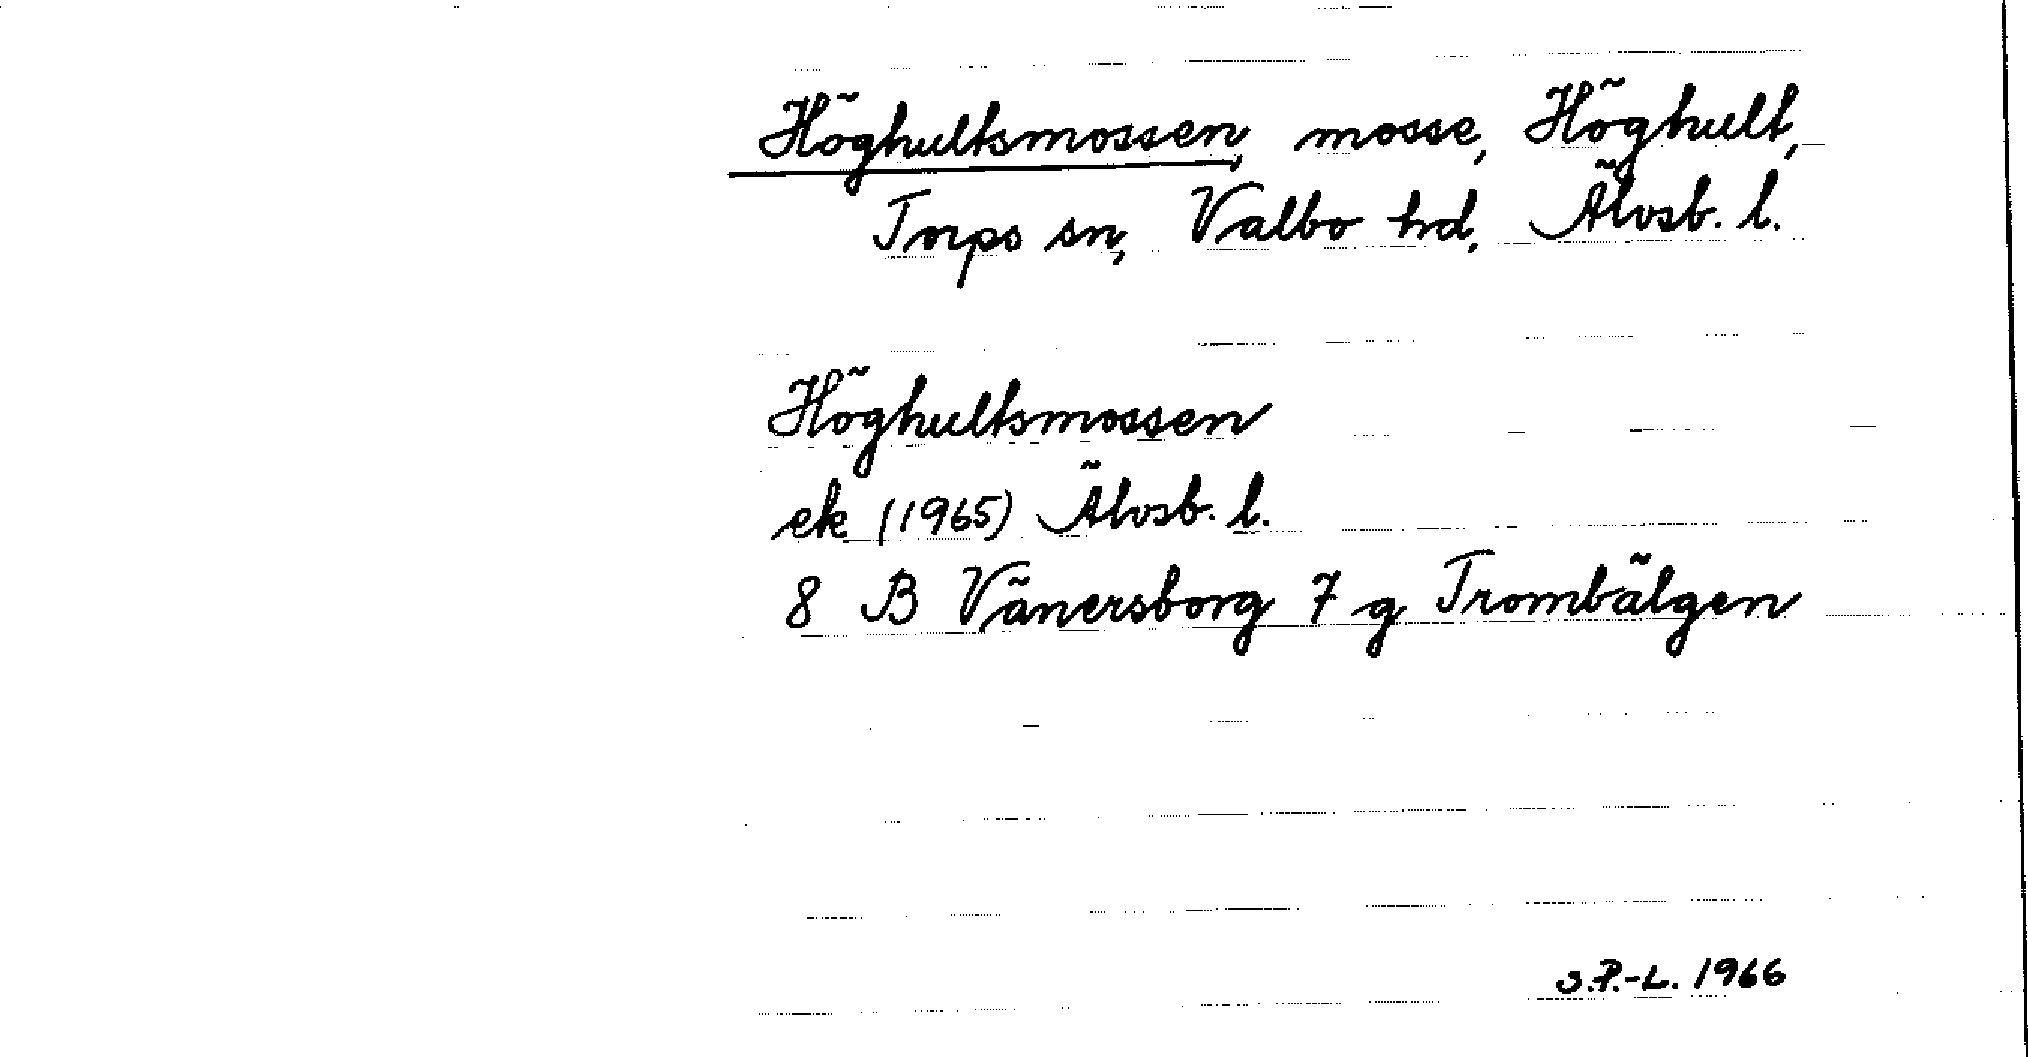 Höghultsmossen, mosse, Höghult,
Torps sn, Valbo hd, Älvsb. l.
Höghultsmossen
ek (1965) Älvsb. l.
8 B Vänersborg 7 g Trombälgen
S.P.-L. 1966